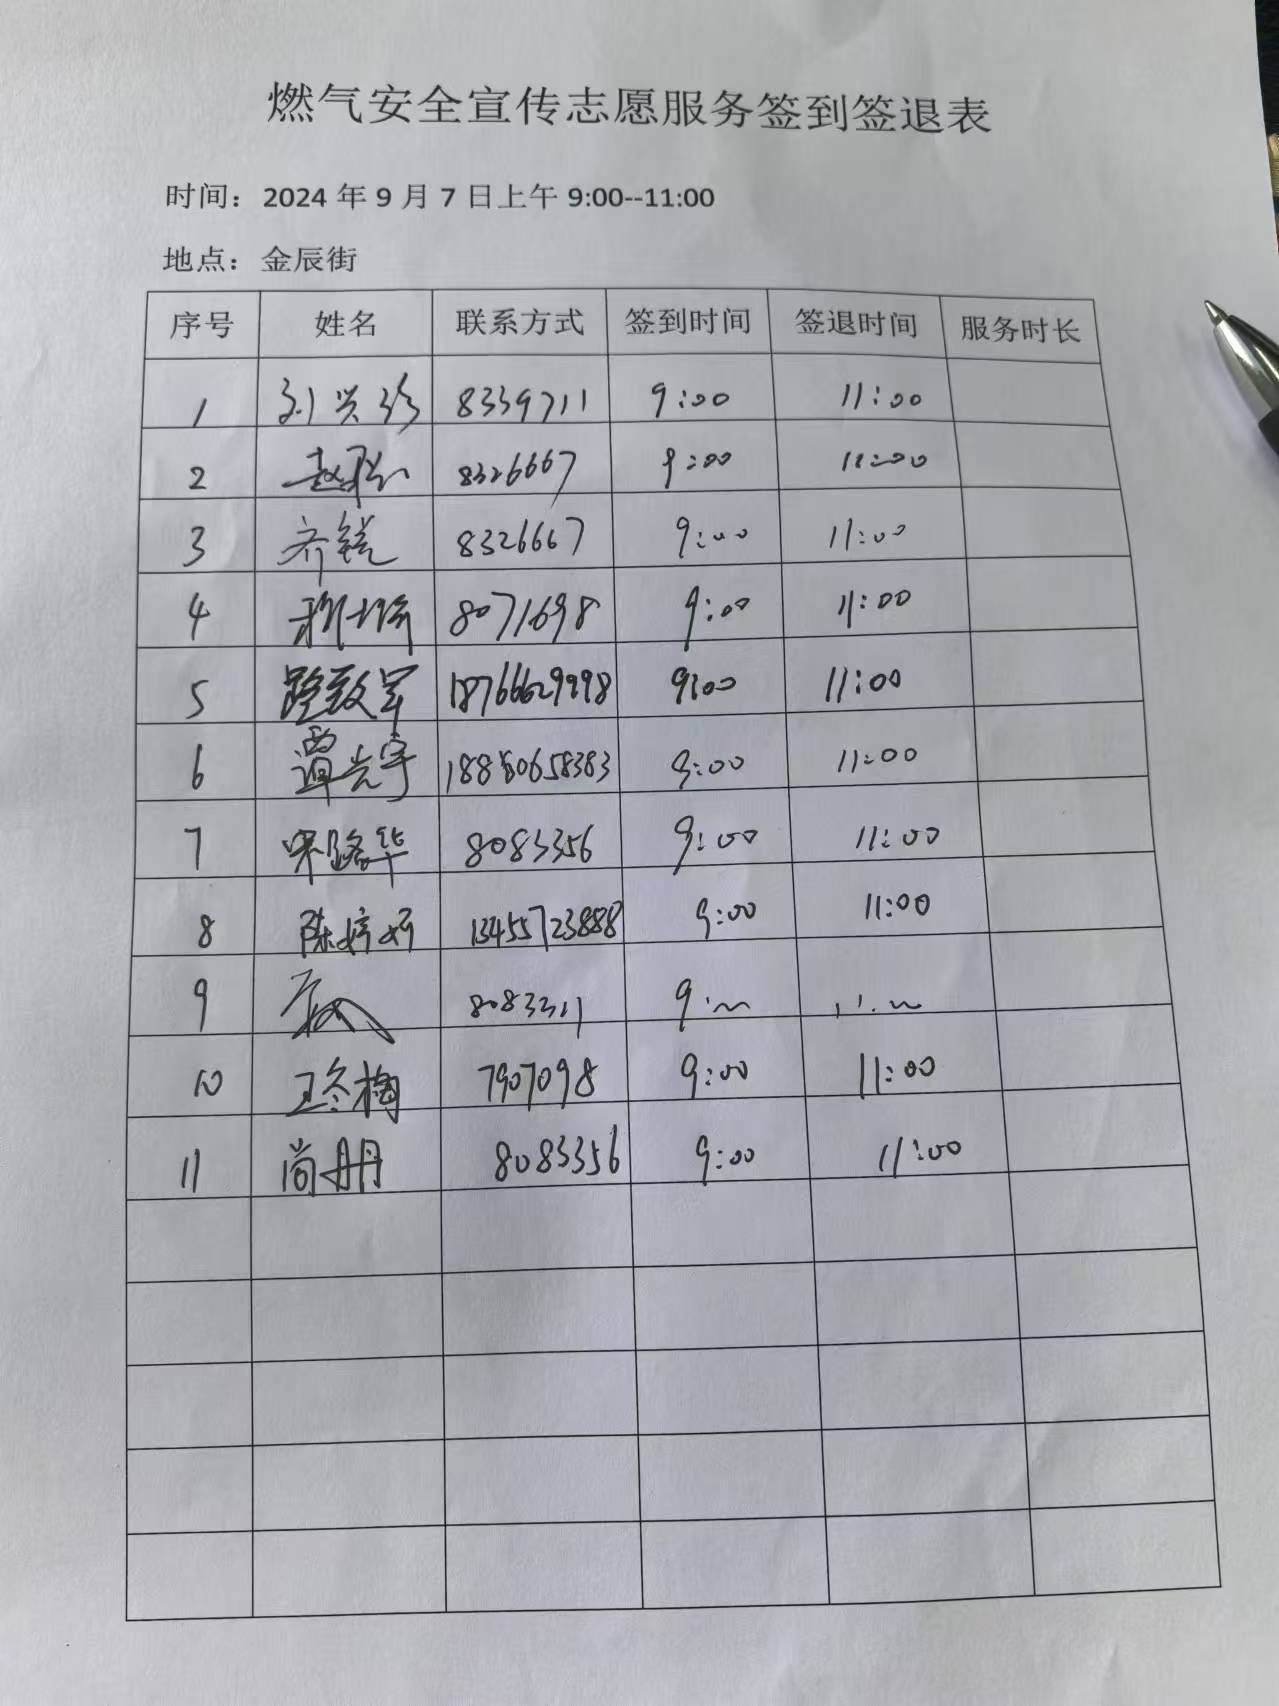 燃气安全宣传志愿服务签到签退表
时间：2024 年 9 月 7 日上午 9:00--11:00
地点：金辰街
序号 姓名 联系方式 签到时间 签退时间 服务时长
1 刘兴珍 8339711 9:00 11:00
2 8326667 9:00 11:00
3 齐锐 8326667 9:00 11:00
4 8071698 9:00 11:00
5 路致军 18766629998 9:00 11:00
6 谭光宇 9:00 11:00
7 宋路华 8083356 9:00 11:00
8 陈婷妍 13455723888 9:00 11:00
9 8083311
10 王冬梅 7907098 9:00 11:00
11 尚丹丹 8083356 9:00 11:00